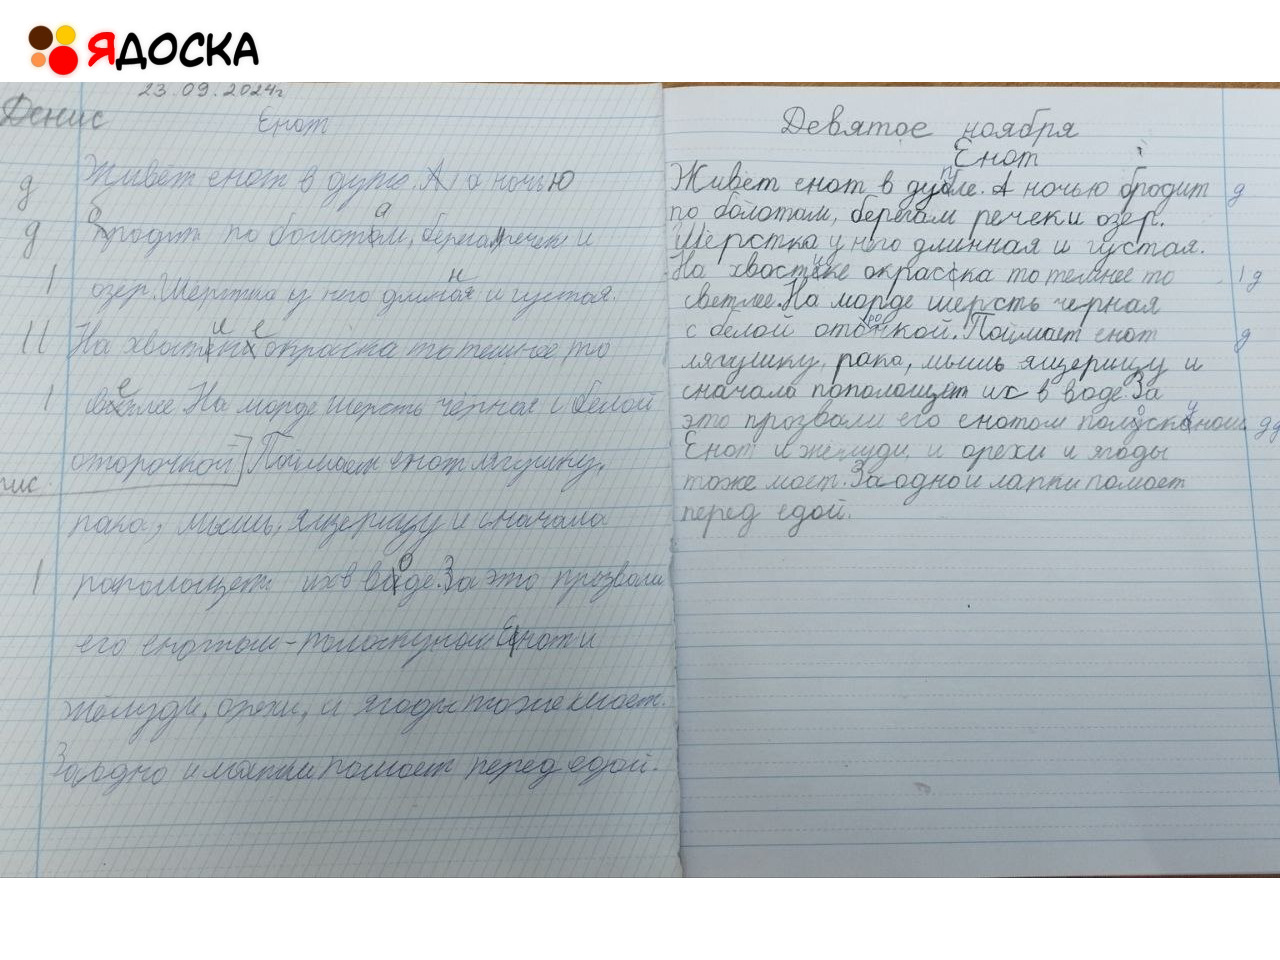 ЯДОСКА
23.09.2024г
Денис
Енот
д Живёт енот в дупле. А а ночью
д бродит по болотам, берегам речек и
| озер. Шерстка у него длинная и густая.
|| На хвостике окраска то темнее то
| светлее. На морде шерсть чёрная с белой
оторочкой. Поймает енот лягушку,
рака, мышь, ящерицу и сначала
| пополощет их в воде. За это прозвали
его енотом-полоскуном Енот и
жёлуди, орехи, и ягоды тоже моет.
Заодно и лапки помоет перед едой.
Девятое ноября
Енот
Живет енот в дупле. А ночью бродит д
по болотам, берегам речек и озер.
Шерстка у него длинная и густая.
На хвостике окраска то темнее то | д
светлее. На морде шерсть черная
с белой оторочкой. Поймает енот д
лягушку, рака, мышь ящерицу и
сначала пополощет их в воде. За
это прозвали его енотом полоскуном. дд
Енот и желуди и орехи и ягоды
тоже моет. Заодно и лапки помоет
перед едой.